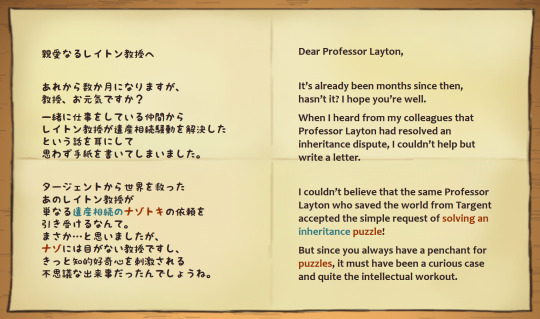 親愛なるレイトン教授へ
あれから数か月になりますが、
教授、お元気ですか？
一緒に仕事をしている仲間から
レイトン教授が遺産相続騒動を解決した
という話を耳にして
思わず手紙を書いてしまいました。
タージェントから世界を救った
あのレイトン教授が
単なる遺産相続のナゾトキの依頼を
引き受けるなんて。
まさか…と思いましたが、
ナゾには目がない教授ですし、
きっと知的好奇心を刺激される
不思議な出来事だったんでしょうね。
Dear Professor Layton,
It's already been months since then,
hasn't it? I hope you're well.
When I heard from my colleagues that
Professor Layton had resolved an
inheritance dispute, I couldn't help but
write a letter.
I couldn't believe that the same Professor
Layton who saved the world from Targent
accepted the simple request of solving an
inheritance puzzle!
But since you always have a penchant for
puzzles, it must have been a curious case
and quite the intellectual workout.